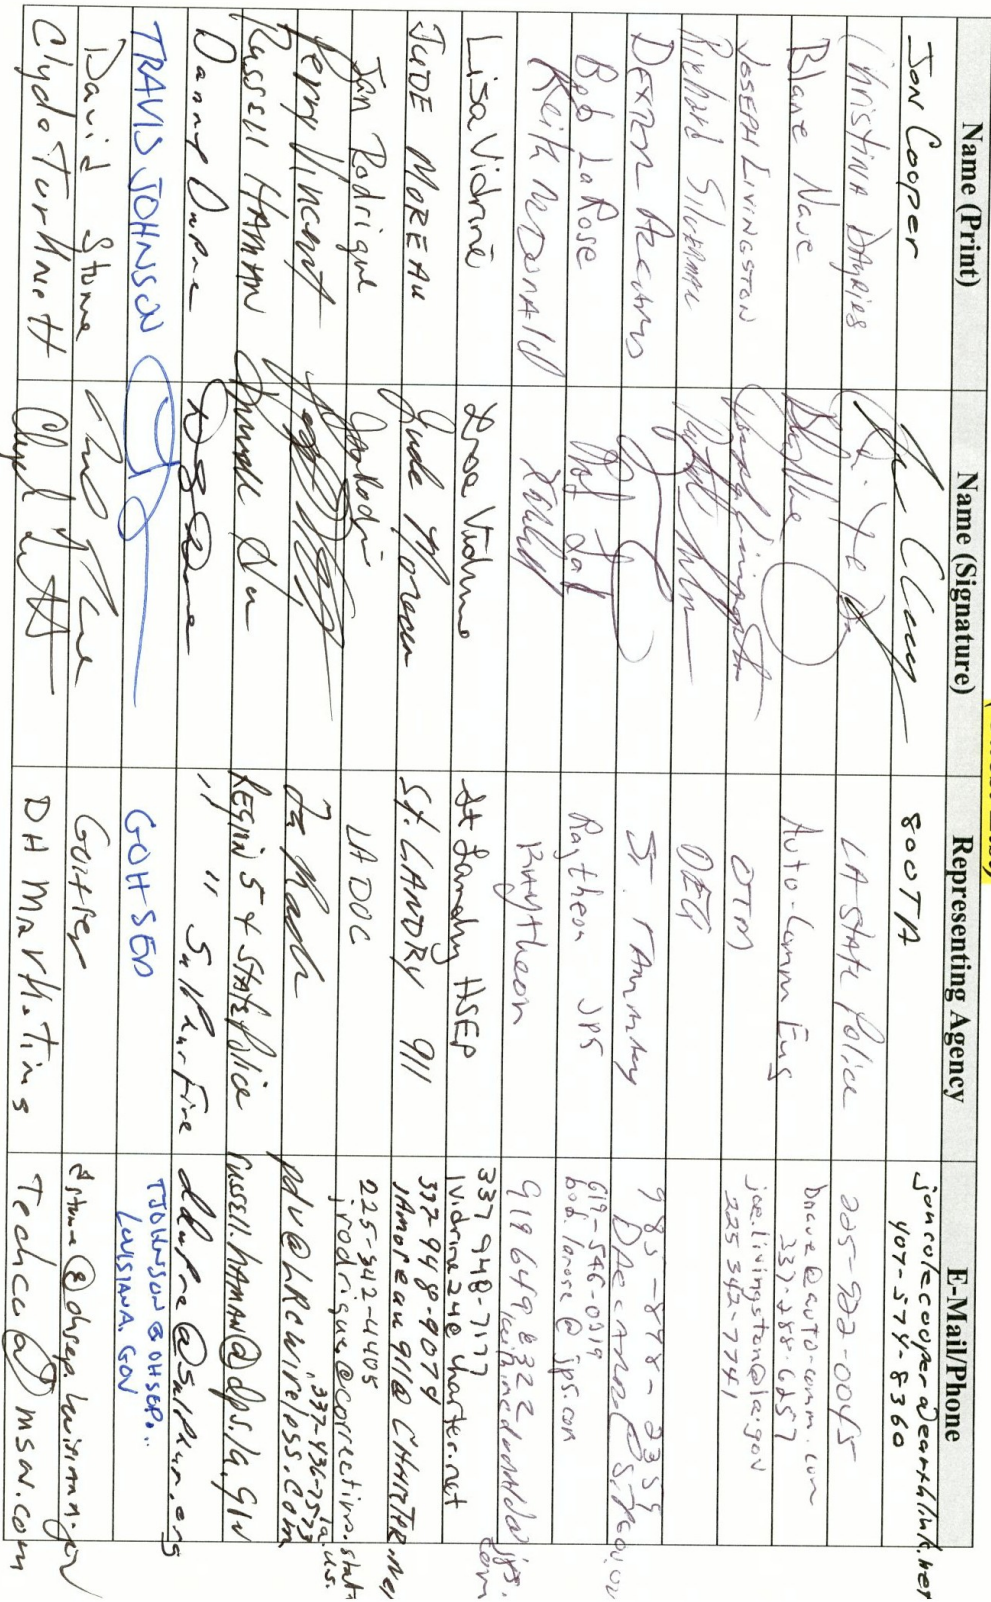 Name (Print) Name (Signature) Representing Agency E-Mail/Phone
Jon Cooper 800TA joncolecooper@earthlink.net
407-574-8360
Christina Dayries LA State Police 225-922-0045
Blane Nave Auto-Comm Eng bnave@auto-comm.com
337-288-6257
Joseph Livingston Joseph Livingston OTM joe.livingston@la.gov
225 342-7741
Richard DEQ
Dexter St. Tammany 985-898-2359
Bob LaRose Raytheon JPS 619-546-0319
bob.larose@jps.com
Keith McDonald Raytheon 919 649 8322
Lisa Vidrine Lisa Vidrine St Landry HSEP 337 948-7177
lvidrine24@charter.net
JUDE MOREAU Jude Moreau St. LANDRY 911 337-948-9074
JAmoreau911@CHARTER.Net
Jim Rodrigue LA DOC 225-342-4405
jrodrigue@corrections.state.la.us.
Perry Vincent 337-436-7573
pdv@LRCwireless.com
Russell HAMAN Region 5 + State Police russell.haman@dps.la.gov
Danny Dupre " " Sulphur Fire ddupre@sulphur.org
TRAVIS JOHNSON GOHSEP TJOHNSON@OHSEP..
LOUISIANA.GOV
David Stume
Clyde Turknett DH Marketing Techcu@msn.com